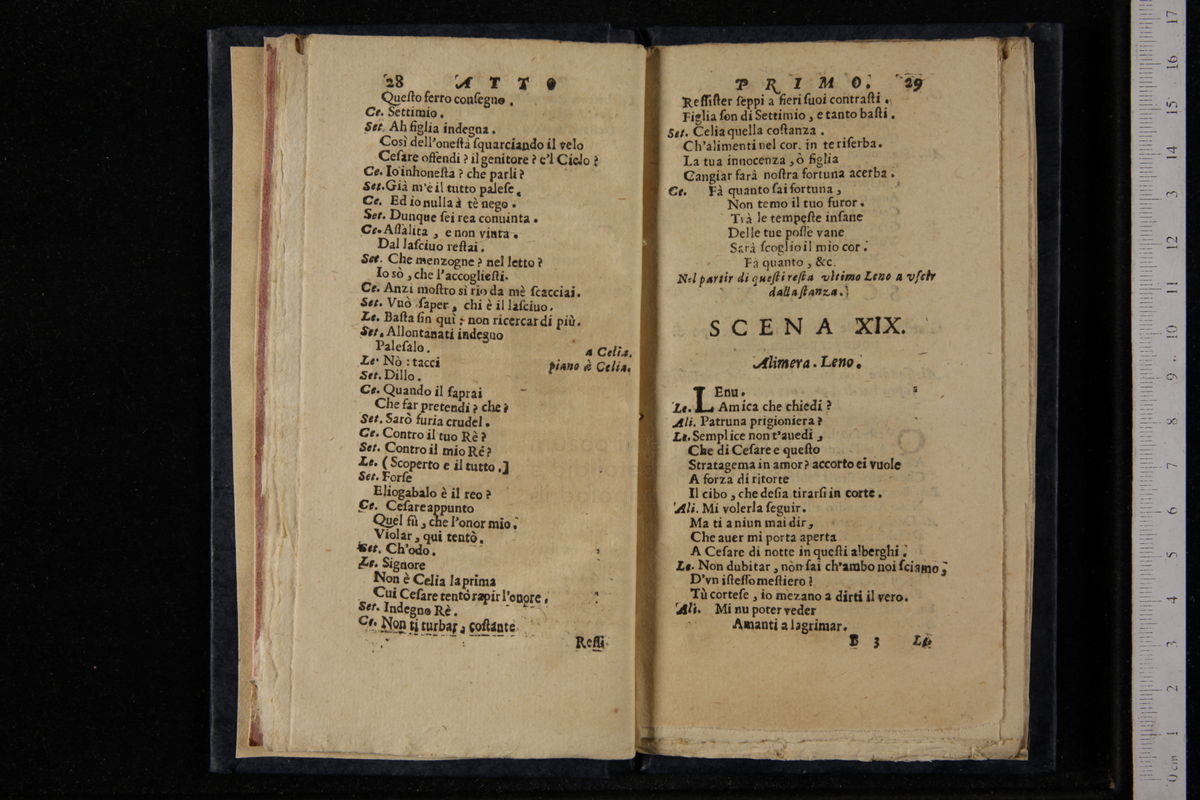 28 ATTO
Questo ferro consegno.
Ce. Settimio.
Set. Ah figlia indegna.
Così dell'onestà squarciando il velo
Cesare offendi? il genitore? e'l Cielo?
Ce. Io inhonesta? che parli?
Set. Già m'é il tutto palese.
Ce. Ed io nulla à tè nego.
Set. Dunque sei rea conuinta.
Ce. Assalita, e non vinta.
Dal lasciuo restai.
Set. Che menzogne? nel letto?
Io sò, che l'accogliesti.
Ce. Anzi mostro sì rio da mè scacciai.
Set. Vuò saper, chi è il lasciuo.
Le. Basta sin qui: non ricercar di più.
Set. Allontanati indegno
Palesalo. a Celia.
Le. Nò: tacci piano à Celia.
Set. Dillo.
Ce. Quando il saprai
Che far pretendi? che?
Set. Sarò furia crudel.
Ce. Contro il tuo Rè?
Set. Contro il mio Ré?
Le. (Scoperto e il tutto.]
Set. Forse
Eliogabalo è il reo?
Ce. Cesare appunto
Quel fù, che l'onor mio.
Violar, qui tentò.
Set. Ch'odo.
Le. Signore
Non è Celia la prima
Cui Cesare tentò rapir l'onore.
Set. Indegno Rè.
Ce. Non ti turbar, costante
Ressi-
PRIMO. 29
Ressister seppi a fieri suoi contrasti.
Figlia son di Settimio, e tanto basti.
Set. Celia quella costanza.
Ch'alimenti nel cor. in te riserba.
La tua innocenza, ò figlia
Cangiar farà nostra fortuna acerba.
Ce. Fà quanto sai fortuna,
Non temo il tuo furor.
Trà le tempeste insane
Delle tue posse vane
Sarà scoglio il mio cor.
Fà quanto, &c.
Nel partir di questi resta vltimo Leno a vscir
dalla stanza.
SCENA XIX.
Alimera. Leno.
LEnu.
Le. Amica che chiedi?
Ali. Patruna prigioniera?
Le. Semplice non t'auedi,
Che di Cesare e questo
Stratagema in amor? accorto ei vuole
A forza di ritorte
Il cibo, che desia tirarsi in corte.
Ali. Mi volerla seguir.
Ma ti a niun mai dir,
Che auer mi porta aperta
A Cesare di notte in questi alberghi.
Le. Non dubitar, nòn sai ch'ambo noi sciamo,
D'vn istesso mestiero?
Tù cortese, io mezano a dirti il vero.
Ali. Mi nu poter veder
Amanti a lagrimar.
B 3 Le.